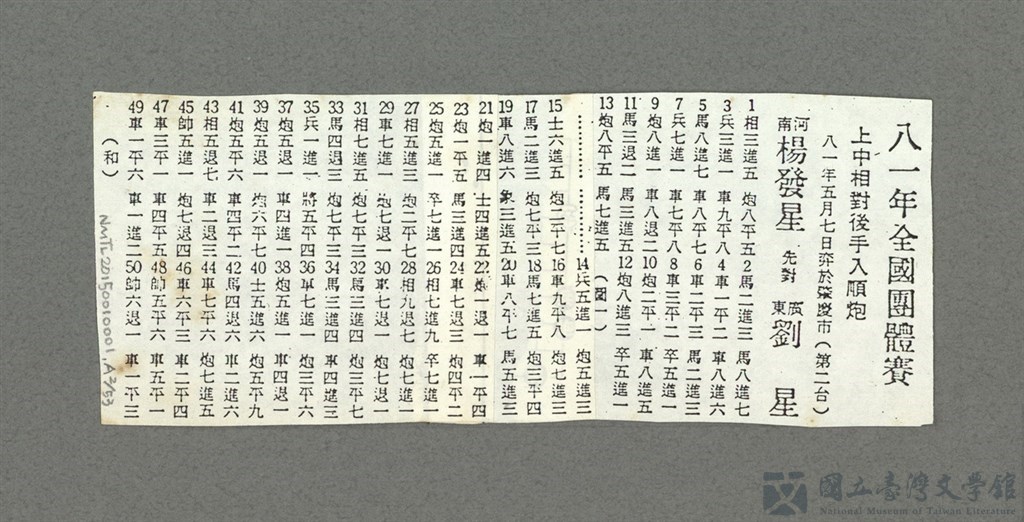 八一年全國團體賽
上中相對後手入順炮
八一年五月七日弈於肇慶市(第二台)
河南楊發星 先對 廣東劉 星
1相三進五 炮八平五2馬二進三 馬八進七
3兵三進一 車九平八4車一平二 車八進六
5馬八進七 車八平七6 馬二進三
7兵七進一 車七平八8車三平二 卒五進一
9炮八進一 車八退二10炮二平一 車八進五
11馬三退二 馬三進五12炮八進三 卒五進一
13炮八平五 馬七進五(圖一)
……………………14兵五進一 炮五進三
15士六進五 炮二平七16車九平八 炮七進三
17馬二進三 炮七平三18馬七進五 炮三平四
19車八進六 象三進五20車八平七 馬五進三
21炮四進一 士四進五22炮一退一 車一平四
23炮一平五 馬三進四24車七退三 炮四平二
25炮五進一 卒七進一26相五進九 卒七進一
27相五進三 炮二平七28相九退七 炮七進一
29車七進一 炮七退一30車七退一 炮七進一
31相七進五 炮七平三32車三進四 炮三平七
33馬四退三 炮七平三34馬三進四 車四進三
35兵一進一 將五平四36車七進一 炮三平六
37炮五退一 車四進一38炮五進一 車四退一
39炮五進一 炮六平七40士五進六 炮五平九
41炮五平六 車四平二42馬四退六 車二進六
43相五退七 車二退三44車七平六 炮七進五
45帥五進一 炮七退四46車六平三 車二平四
47車三平一 車四平五48帥五平六 車五平一
49車一平六 車一進二50帥六退一 車一平三
(和)
NMTL20150010001,A2/53
國立臺灣文學館
National Museum of Taiwan Literature